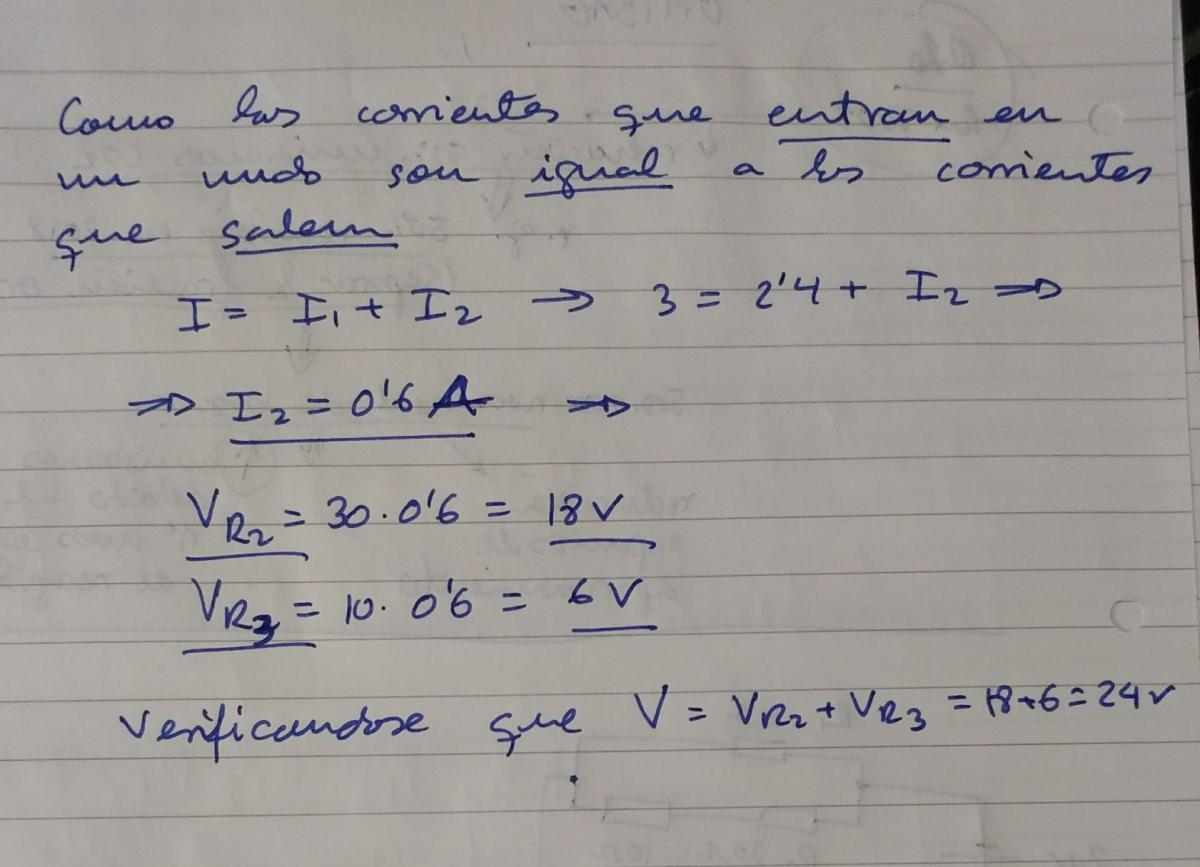 Como las corrientes que entran en
un nudo son igual a las corrientes
que salem
I = I₁ + I₂ → 3 = 2'4 + I₂ ⇒
⇒ I₂ = 0'6 A ⇒
V_R₂ = 30 · 0'6 = 18 V
V_R₃ = 10 · 0'6 = 6 V
Verificandose que V = V_R₂ + V_R₃ = 18 + 6 = 24 V